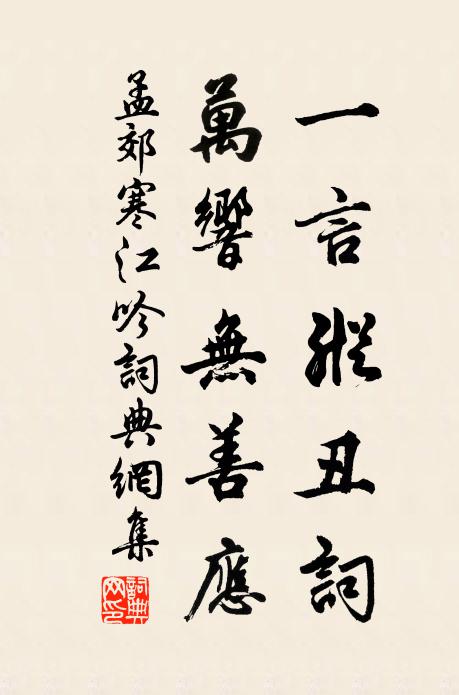 一言縱丑詞
萬響無善應
孟郊寒江吟詞典網集
詞典网印